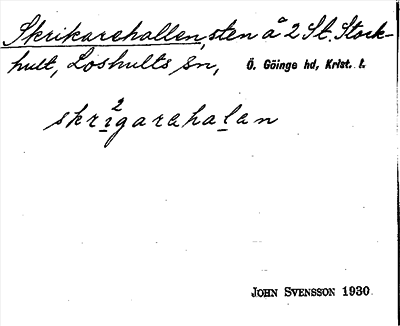 Skrikarehallen, sten å 2 St. Stock-
hult, Loshults sn, Ö. Göinge hd, Krist. l.
2
skrigarehalan
JOHN SVENSSON 1930.